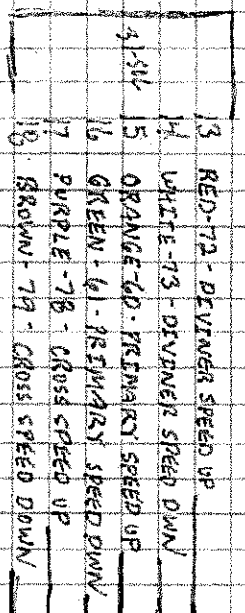 13 RED-72 - DIVINER SPEED UP
14 WHITE-73 - DIVINER SPEED DWN
15 ORANGE-60 - PRIMARY SPEED UP
16 GREEN-61 - PRIMARY SPEED DWN
17 PURPLE-78 - CROSS SPEED UP
18 BROWN-79 - CROSS SPEED DOWN